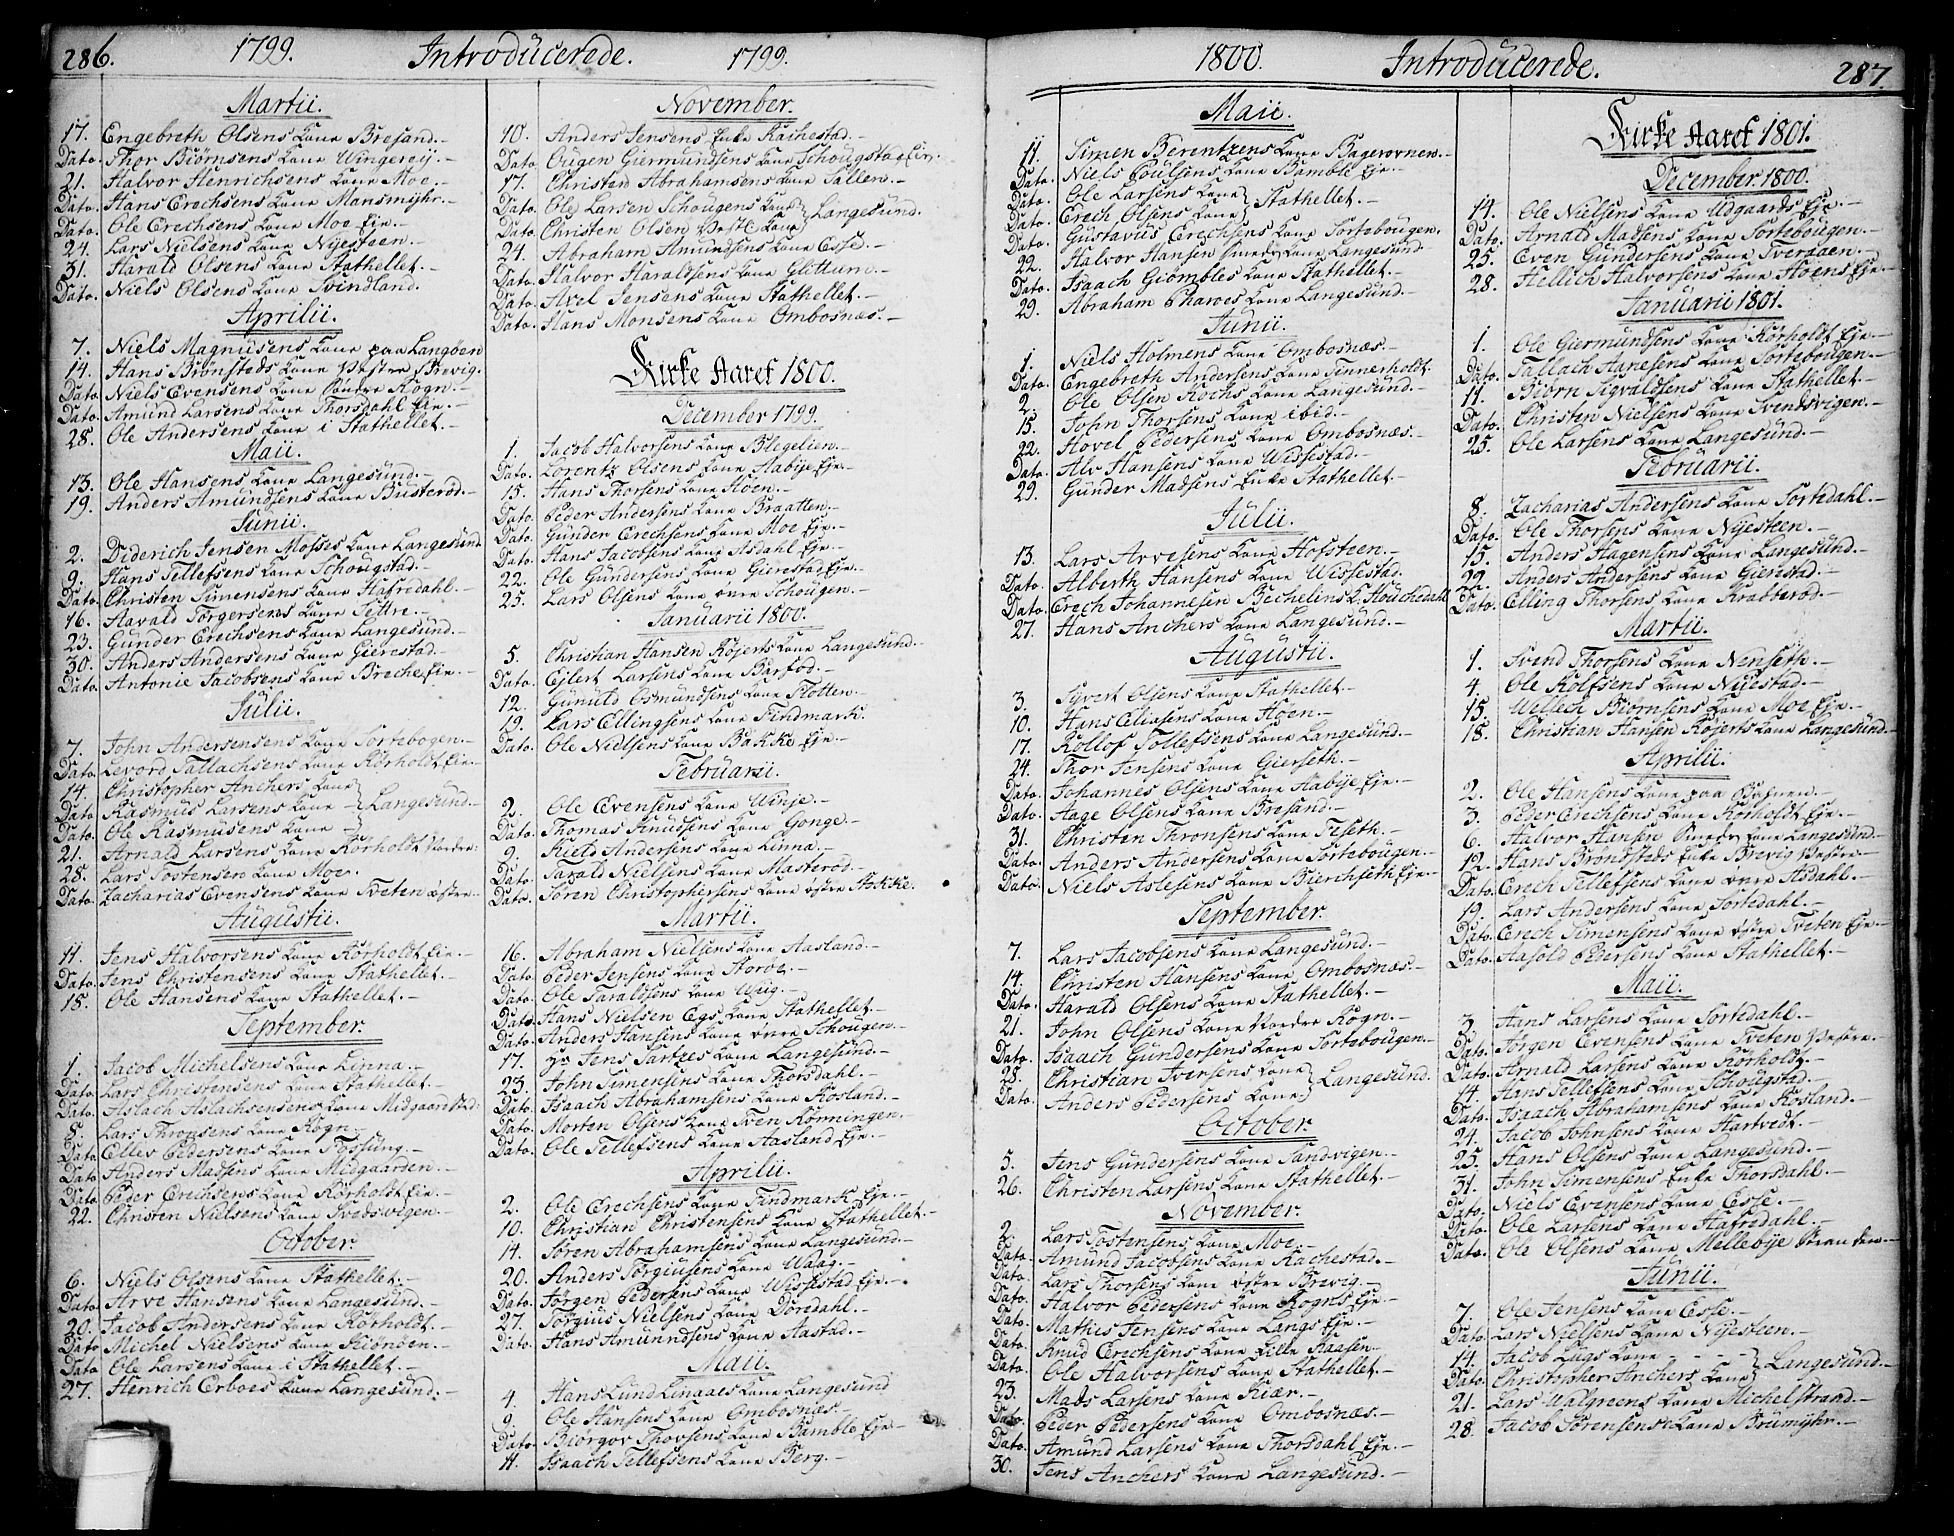 286. 1799. Introducerede. 1799.
Martii.
17. Engebreth Olsens Kone Bresand.-
Dato. Thor Biørnsens Kone Wingereij.-
21. Halvor Henrichsens Kone Moe.-
Dato. Hans Erechsens Kone Mansmyhr.-
Dato. Ole Erechsens Kone Moe Eje.-
24. Lars Nielsens Kone Nyesteen.-
31. Harald Olsens Kone Stathellet.-
Dato. Niels Olsens Kone Svindland.
Aprilii.
7. Niels Magnusens Kone paa Langøen
14. Hans Brønsteds Kone Vestre Brevig.
Dato. Niels Evensens Kone Søndre Rogn.-
Dato. Amund Larsens Kone Thorsdahl Eje.-
28. Ole Andersens Kone i Stathellet.-
Maii.
13. Ole Hansens Kone Langesund.-
19. Anders Amundsens Kone Busterød.-
Junii.
2. Diderich Jensen Mosses Kone Langesund
9. Hans Tellefsens Kone Schougstad.-
Dato. Christen Simensens Kone Hafredahl.-
16. Harald Torgersens Kone Tittre.-
23. Gunder Erechsens Kone Langesund.-
30. Anders Andersens Kone Gierestad.-
Dato. Antonie Jacobsens Kone Breche Eje.-
Julii.
7. John Andersensens Kone Sortebogen.-
Dato. Levord Tallachsens Kone Kørholdt Eje.-
14. Christopher Anchers Kone
Dato. Rasmus Larsens Kone - Langesund.-
Dato. Ole Rasmusens Kone -
21. Arnald Larsens Kone Kørholdt Nordre.
28. Lars Tostensen Kone Moe.
Dato. Zacharias Evensens Kone Tveten østre.-
Augustii.
11. Jens Halvorsens Kone Kørholdt Eje.-
Dato. Jens Christensens Kone Stathellet.-
18. Ole Hansens Kone Stathellet.-
September.
1. Jacob Michelsens Kone Linna.-
Dato. Lars Christensens Kone Stathellet.-
Dato. Aslach Aslachsensens Kone Midgaarden Ød.
8. Lars Thronsens Kone Rogn.-
Dato. Ellev Pedersens Kone Fossung.-
Dato. Anders Madsens Kone Midgaarden.-
Dato. Peder Erechsens Kone Kørholdt Eje.-
22. Christen Nielsens Kone Svedsvigen.-
October.
6. Niels Olsens Kone Stathellet.-
Dato. Arve Hansens Kone Langesund.-
20. Jacob Andersens Kone Kørholdt.-
Dato. Michel Nielsens Kone Kiønsen.-
Dato. Ole Larsens Kone i Stathellet.-
27. Henrich Erboes Kone Langesund.-
November.
10. Anders Jensens Enke Rachestad.-
Dato. Ougen Giermundsens Kone Schougstad Eje.
17. Christen Abrahamsens Kone Sallen.-
Dato. Ole Larsen Schougens Kone Langesund.
Dato. Christen Olsen Post Kone
24. Abraham Amundsens Kone Esse.-
Dato. Halvor Haraldsens Kone Glittum.-
Dato. Axel Jensens Kone Stathellet.-
Dato. Hans Monsens Kone Ombosnæs.-
Kirke Aaret 1800.
December 1799.
1. Jacob Halvorsens Kone Blegelien.-
Dato. Lorentz Olsens Kone Habije Eje.-
15. Hans Thorsens Kone Hoen.-
Dato. Peder Andersens Kone Braatten.-
Dato. Gunder Erechsens Kone Moe Eje.-
Dato. Hans Jacobsens Kone Asdahl Eje.-
22. Ole Gundersens Kone Gierestad Eje.-
25. Lars Olsens Kone øvre Schougen.-
Januarii 1800.
5. Christian Hansen Röjerts Kone Langesund.-
Dato. Ejlert Larsens Kone Barfod.-
12. Gunuld Osmundsens Kone Flotten.-
19. Lars Ellingsens Kone Findmark.
Dato. Ole Nielsens Kone Bakke Eje.-
Februarii.
2. Ole Evensens Kone Winje.-
Dato. Thomas Knudsens Kone Gonge.-
9. Kield Andersens Kone Linna.-
Dato. Sarald Nielsens Kone Masterød.-
Dato. Søren Christophersens Kone østre Stokke.
Martii.
16. Abraham Nielsens Kone Aasland.-
Dato. Peder Jensens Kone Storøe.-
Dato. Ole Taraldsens Kone Wiig.-
Dato. Hans Nielsen Egs Kone Stathellet.-
Dato. Anders Hansens Kone øvre Schougen.-
17. Hr. Jens Sartzes Kone Langesund.-
23. John Simensens Kone Thorsdahl.-
Dato. Isaach Abrahamsens Kone Rosland.-
Dato. Morten Olsens Kone Tven Rønningen.-
Dato. Ole Tellefsens Kone Aasland Eje.-
Aprilii.
2. Ole Erechsens Kone Findmark Eje.-
10. Christian Christensens Kone Stathellet.-
14. Søren Abrahamsens Kone Langesund.-
20. Anders Torgiusens Kone Waag.-
Dato. Jørgen Pedersens Kone Wissestad Eje.-
27. Torgius Nielsens Kone Doredahl.-
Dato. Hans Amunndsens Kone Aastad.-
Maii.
4. Hans Lund Linaaes Kone Langesund
9. Ole Hansens Kone Ombosnæs.-
Dato. Biørgov Thovsens Kone Bamble Eje.-
11. Isaach Tellefsens Kone Berg.-
1800. Introducerede. 287.
Maii.
11. Simen Berentzens Kone Bagerovnen.-
Dato. Niels Poulsens Kone Bamble Eje.-
Dato. Ole Larsens Kone Stathellet.-
Dato. Erech Olsens Kone
Dato. Gustavus Erechsens Kone Sortebougen.
22. Halvor Hansen Smeds Kone Langesund
Dato. Isaach Giømbles Kone Stathellet.-
29. Abraham Pharoes Kone Langesund.-
Junii.
1. Niels Holmens Kone Ombosnæs.-
Dato. Engebreth Andersens Kone Tinnerholdt.
2. Ole Olsen Kochs Kone Langesund.-
15. John Thorsens Kone ibid.-
22. Hovel Pedersens Kone Ombosnæs.-
Dato. Alv Hansens Kone Wissestad.-
29. Gunder Madsens Enke Stathellet.-
Julii.
13. Lars Arvesens Kone Hofsteen.-
Dato. Alberth Hansens Kone Wissestad.
Dato. Erech Johannesen Bechelins K. Stouchedahl
27. Hans Anchers Kone Langesund.-
Augustii.
3. Syvert Olsens Kone Stathellet.-
10. Hans Eliasens Kone Hoen.-
17. Rollof Tollefsens Kone Langesund.-
24. Thor Jensens Kone Gierseth.-
Dato. Johannes Olsens Kone Habije Eje.-
Dato. Aage Olsens Kone Bresand.-
31. Christen Thronsens Kone Teseth.-
Dato. Anders Andersens Kone Sortebougen.-
Dato. Niels Aslesens Kone Bierchseth Eje.-
September.
7. Lars Jacobsens Kone Langesund.-
14. Christen Hansens Kone Ombosnæs.-
Dato. Harald Olsens Kone Stathellet.-
21. John Olsens Kone Nordre Rogn.-
Dato. Isaach Gundersens Kone Sortebougen.-
28. Christian Iversens Kone Langesund.
Dato. Anders Pedersens Kone
October.
5. Jens Gundersens Kone Sandvigen.-
26. Christen Larsens Kone Stathellet.-
November.
2. Lars Tostensens Kone Moe.-
Dato. Amund Jacobsens Kone Rachestad.-
Dato. Lars Thorsens Kone østre Brevig.-
Dato. Halvor Pedersens Kone Rogns Eje.-
Dato. Mathis Jensens Kone Langs Eje.-
Dato. Knud Erechsens Kone Lille Haasen.-
Dato. Ole Halvorsens Kone Stathellet.-
23. Mads Larsens Kone Kiær.-
Dato. Peder Pedersens Kone Ombosnæs.-
Dato. Amund Larsens Kone Thorsdahl Eje.-
30. Jens Anchers Kone Langesund.-
Kirke Aaret 1801.
December 1800.
14. Ole Nielsens Kone Udgaards Eje.-
Dato. Arnald Madsens Kone Sortebougen.-
25. Even Gundersens Kone Tverdaen.-
28. Hellich Halvorsens Kone Hoens Eje.-
Januarii 1801.
1. Ole Giermundsens Kone Kørholdt Eje.-
Dato. Tallach Hanesens Kone Sortebougen.-
11. Biørn Sigvaldsens Kone Stathellet.-
Dato. Christen Nielsens Kone Svendsvigen.-
25. Ole Larsens Kone Langesund.-
Februarii.
8. Zacharias Andersens Kone Sortedahl.-
Dato. Ole Thorsens Kone Nyesteen.-
15. Anders Hagensens Kone Langesund.-
22. Anders Andersens Kone Gierestad.-
Dato. Elling Thorsens Kone Krabberød.-
Martii.
1. Svend Thorsens Kone Nenseth.-
4. Ole Rolfsens Kone Nuestad.-
15. Wellech Biørnsens Kone Moe Eje.-
18. Christian Hansen Röjerts Kone Langesund.-
Aprilii.
2. Ole Hansens Kone paa
3. Peder Erechsens Kone Kørholdt Eje.-
6. Halvor Hansen Smeds Kone Langesund.-
12. Hans Brøndsteds Enke Brevig Vestre.-
Dato. Erech Tellefsens Kone øvre Asdahl.-
19. Lars Andersens Kone Sortedahl.-
Dato. Erech Simensens Kone østre Tveten Eje.-
Dato. Aasold Pedersens Kone Stathellet.-
Maii.
3. Hans Larsens Kone Sortedahl.-
Dato. Jørgen Evensens Kone Tveten Vestre.-
Dato. Arnald Larsens Kone Kørholdt.-
14. Hans Tellefsens Kone Schougstad.-
Dato. Isaach Abrahamsens Kone Rosland.-
24. Jacob Johnsens Kone Hartvedt.-
25. Hans Olsens Kone Langesund.-
31. John Simensens Enke Thorsdahl.-
Dato. Niels Evensens Kone Esse.-
Dato. Ole Larsens Kone Hafredahl.-
Dato. Ole Olsens Kone Mellebye Stranden.-
Junii.
7. Ole Jensens Kone Esse.-
Dato. Lars Nielsens Kone Nyesteen.-
14. Jacob Lugs Kone - - - - Langesund.-
Dato. Christopher Anchers Kone
21. Lars Walgreens Kone Michelstrand.-
28. Jacob Sørensens Kone Brumyhr.-